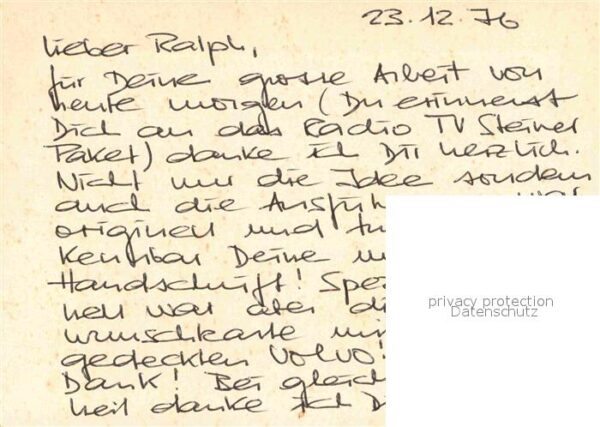 23.12.76
Lieber Ralph,
für Deine grosse Arbeit von
heute morgen (Du erinnerst
Dich an das Radio TV Steiner
Paket) danke ich Dir herzlich.
Nicht nur die Idee sondern
auch die Ausfüh war
originell und
Deine
Handschrift! Spe
nell war aber di
wunschkarte mi
gedeckten Volvo!
Dank! Bei gleich
heit danke ich D
privacy protection
Datenschutz